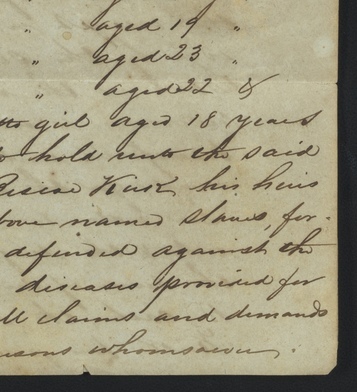 " aged 19 "
" aged 23 "
" aged 22 &
tto girl aged 18 years
to hold unto the said
his heirs
bove named slaves, for-
defended against the
diseases provided for
ll claims and demands
ersons whomsoever.